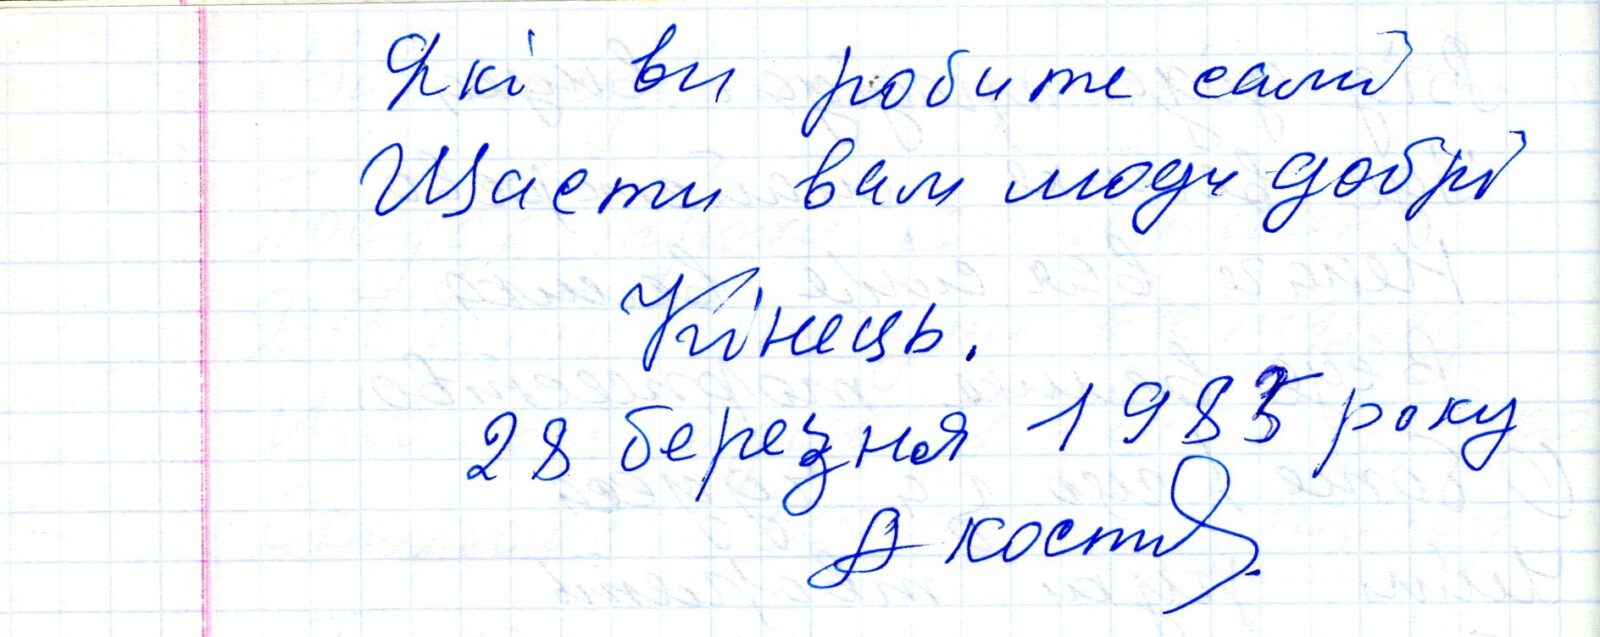 Які ви робите самі
Щасти вам люди добрі
Кінець.
28 березня 1985 року